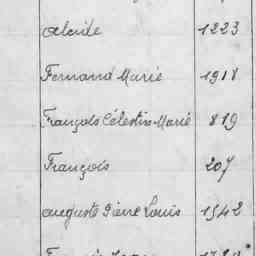 Alcide 1223
Fernand Marie 1918
François Célestin Marie 819
François 207
Auguste Pierre Louis 1542